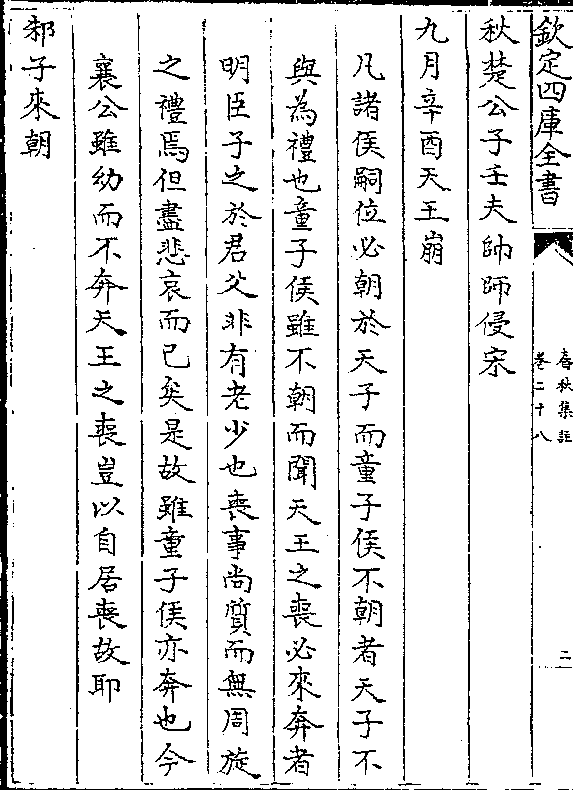 欽定四庫全書
春秋集註
卷二十八
二
秋楚公子壬夫帥師侵宋
九月辛酉天王崩
凡諸侯嗣位必朝於天子而童子侯不朝者天子不
與為禮也童子侯雖不朝而聞天王之喪必來奔者
明臣子之於君父非有老少也喪事尚質而無周旋
之禮焉但盡悲哀而已矣是故雖童子侯亦奔也今
襄公雖幼而不奔天王之喪豈以自居喪故耶
邾子來朝